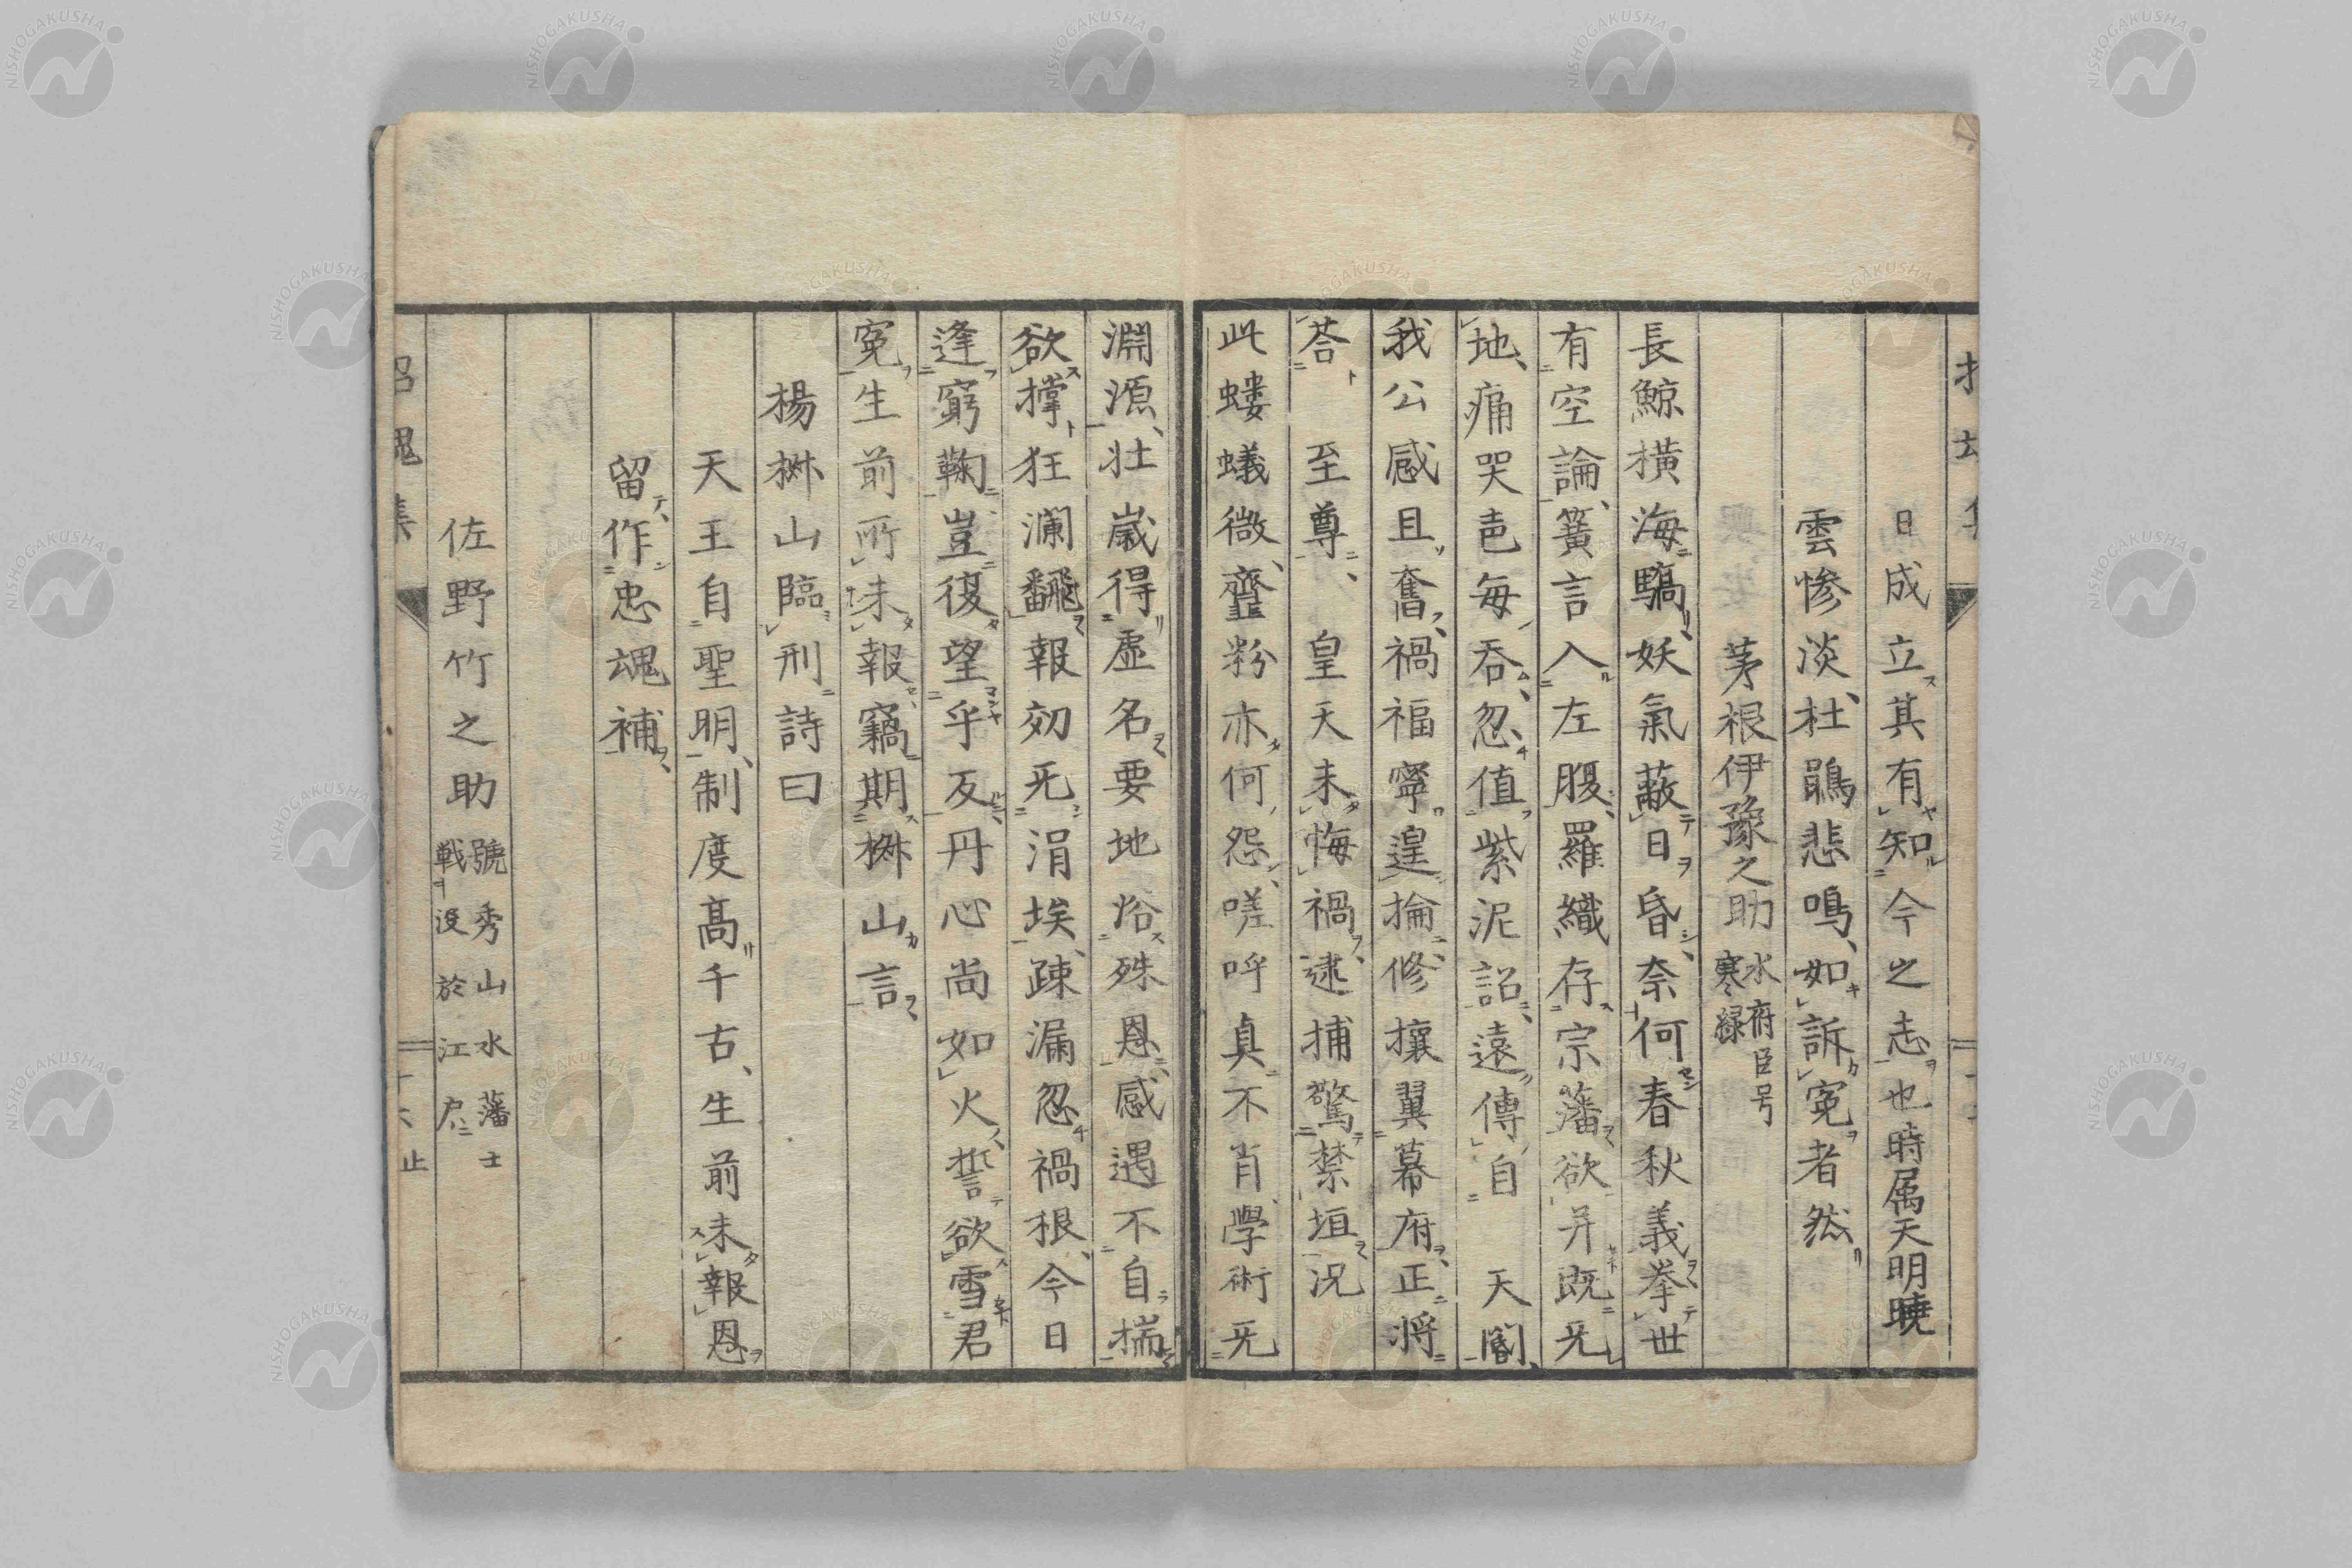 日成立其有知今之志也時属天明曉
雲惨淡杜鵑悲鳴如訴冤者然
茅根伊豫之助 水府臣号寒緑
長鯨横海驕妖氣蔽日昏奈何春秋義挙世
有空論簧言入左腹羅織存宗藩欲并既无
地痛哭声毎吞忍値紫泥詔遠傳自 天閽
我公感且奮禍福寧遑掄修攘翼幕府正将
荅 至尊 皇天未悔禍逮捕驚禁垣況
此螻蟻微虀粉亦何怨嗟吁真不肖學術无
淵源壮歳得虚名要地浴殊恩感遇不自揣
欲撑狂瀾飜報効无涓埃疎漏忍禍根今日
逢窮鞠豈復望乎反丹心尚如火誓欲雪君
冤生前所未報竊期椒山言
楊椒山臨刑詩曰
天王自聖明制度高千古生前未報恩
留作忠魂補
佐野竹之助 號秀山水藩士戦没於江戸
招魂集
十六止
NISHOGAKUSHA